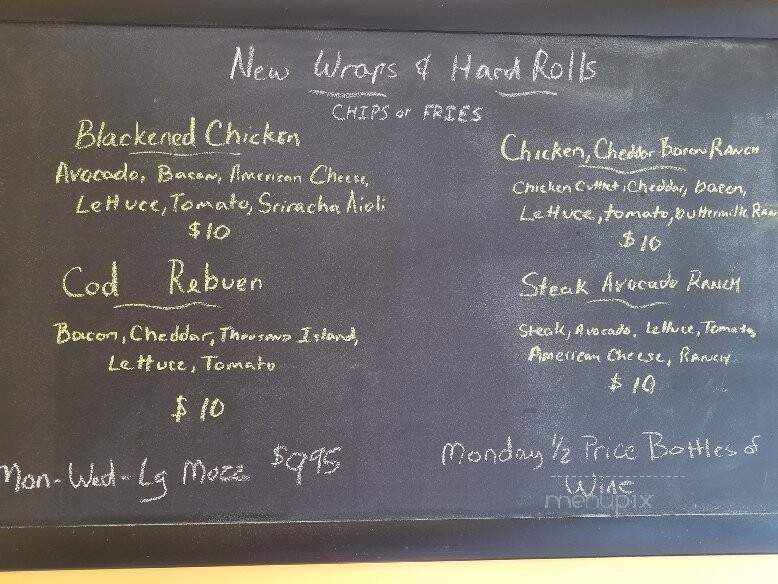 New Wraps & Hard Rolls
CHIPS or FRIES
Blackened Chicken
Avocado, Bacon, American Cheese,
Lettuce, Tomato, Sriracha Aioli
$10
Cod Rebuen
Bacon, Cheddar, Thousand Island,
Lettuce, Tomato
$10
Chicken, Cheddar Bacon RANCH
Chicken Cutlet, Cheddar, bacon,
Lettuce, tomato, buttermilk Ran
$10
Steak Avocado RANCH
Steak, Avocado, Lettuce, Tomato,
American Cheese, RANCH
$10
Mon-Wed-Lg Mozz $9.95
Monday 1/2 Price Bottles of
Wine
menupix